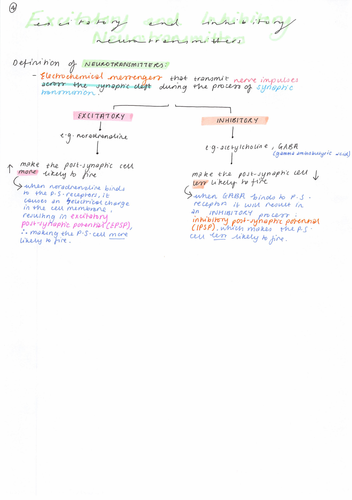 Excitatory and Inhibitory
Neurotransmitters
excitatory and inhibitory
neurotransmitters
Definition of NEUROTRANSMITTERS:
- Electrochemical messengers that transmit nerve impulses
across the synaptic cleft during the process of synaptic
transmission.
EXCITATORY
e.g. noradrenaline
↑ make the post-synaptic cell
more likely to fire
↳ when noradrenaline binds
to the P.S. receptors, it
causes an electrical charge
in the cell membrane,
resulting in excitatory
post-synaptic potential (EPSP),
∴ making the P.S. cell more
likely to fire.
INHIBITORY
e.g. acetylcholine, GABA
(gamma aminobutyric acid)
make the post-synaptic cell ↓
less likely to fire
↳ when GABA binds to P.S.
receptors it will result in
an INHIBITORY process:
inhibitory post-synaptic potential
(IPSP), which makes the P.S.
cell less likely to fire.